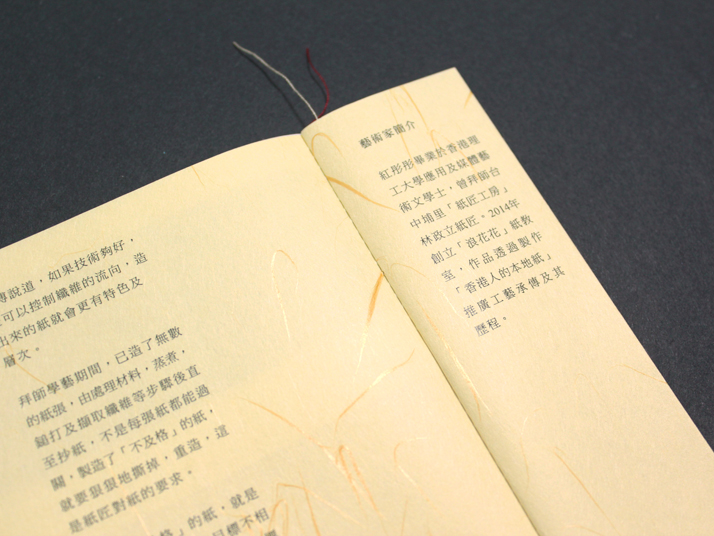 傳說道，如果技術夠好，
可以控制纖維的流向，造
出來的紙就會更有特色及
層次。
拜師學藝期間，已造了無數
的紙張，由處理材料，蒸煮，
鎚打及擷取纖維等步驟後直
至抄紙，不是每張紙都能過
關，製造了「不及格」的紙，
就要狠狠地撕掉，重造，這
是紙匠對紙的要求。
格」的紙，就是
目標不相
藝術家簡介
紅彤彤畢業於香港理
工大學應用及媒體藝
術文學士，曾拜師台
中埔里「紙匠工房」
林政立紙匠。2014年
創立「浪花花」紙教
室，作品透過製作
「香港人的本地紙」
推廣工藝承傳及其
歷程。